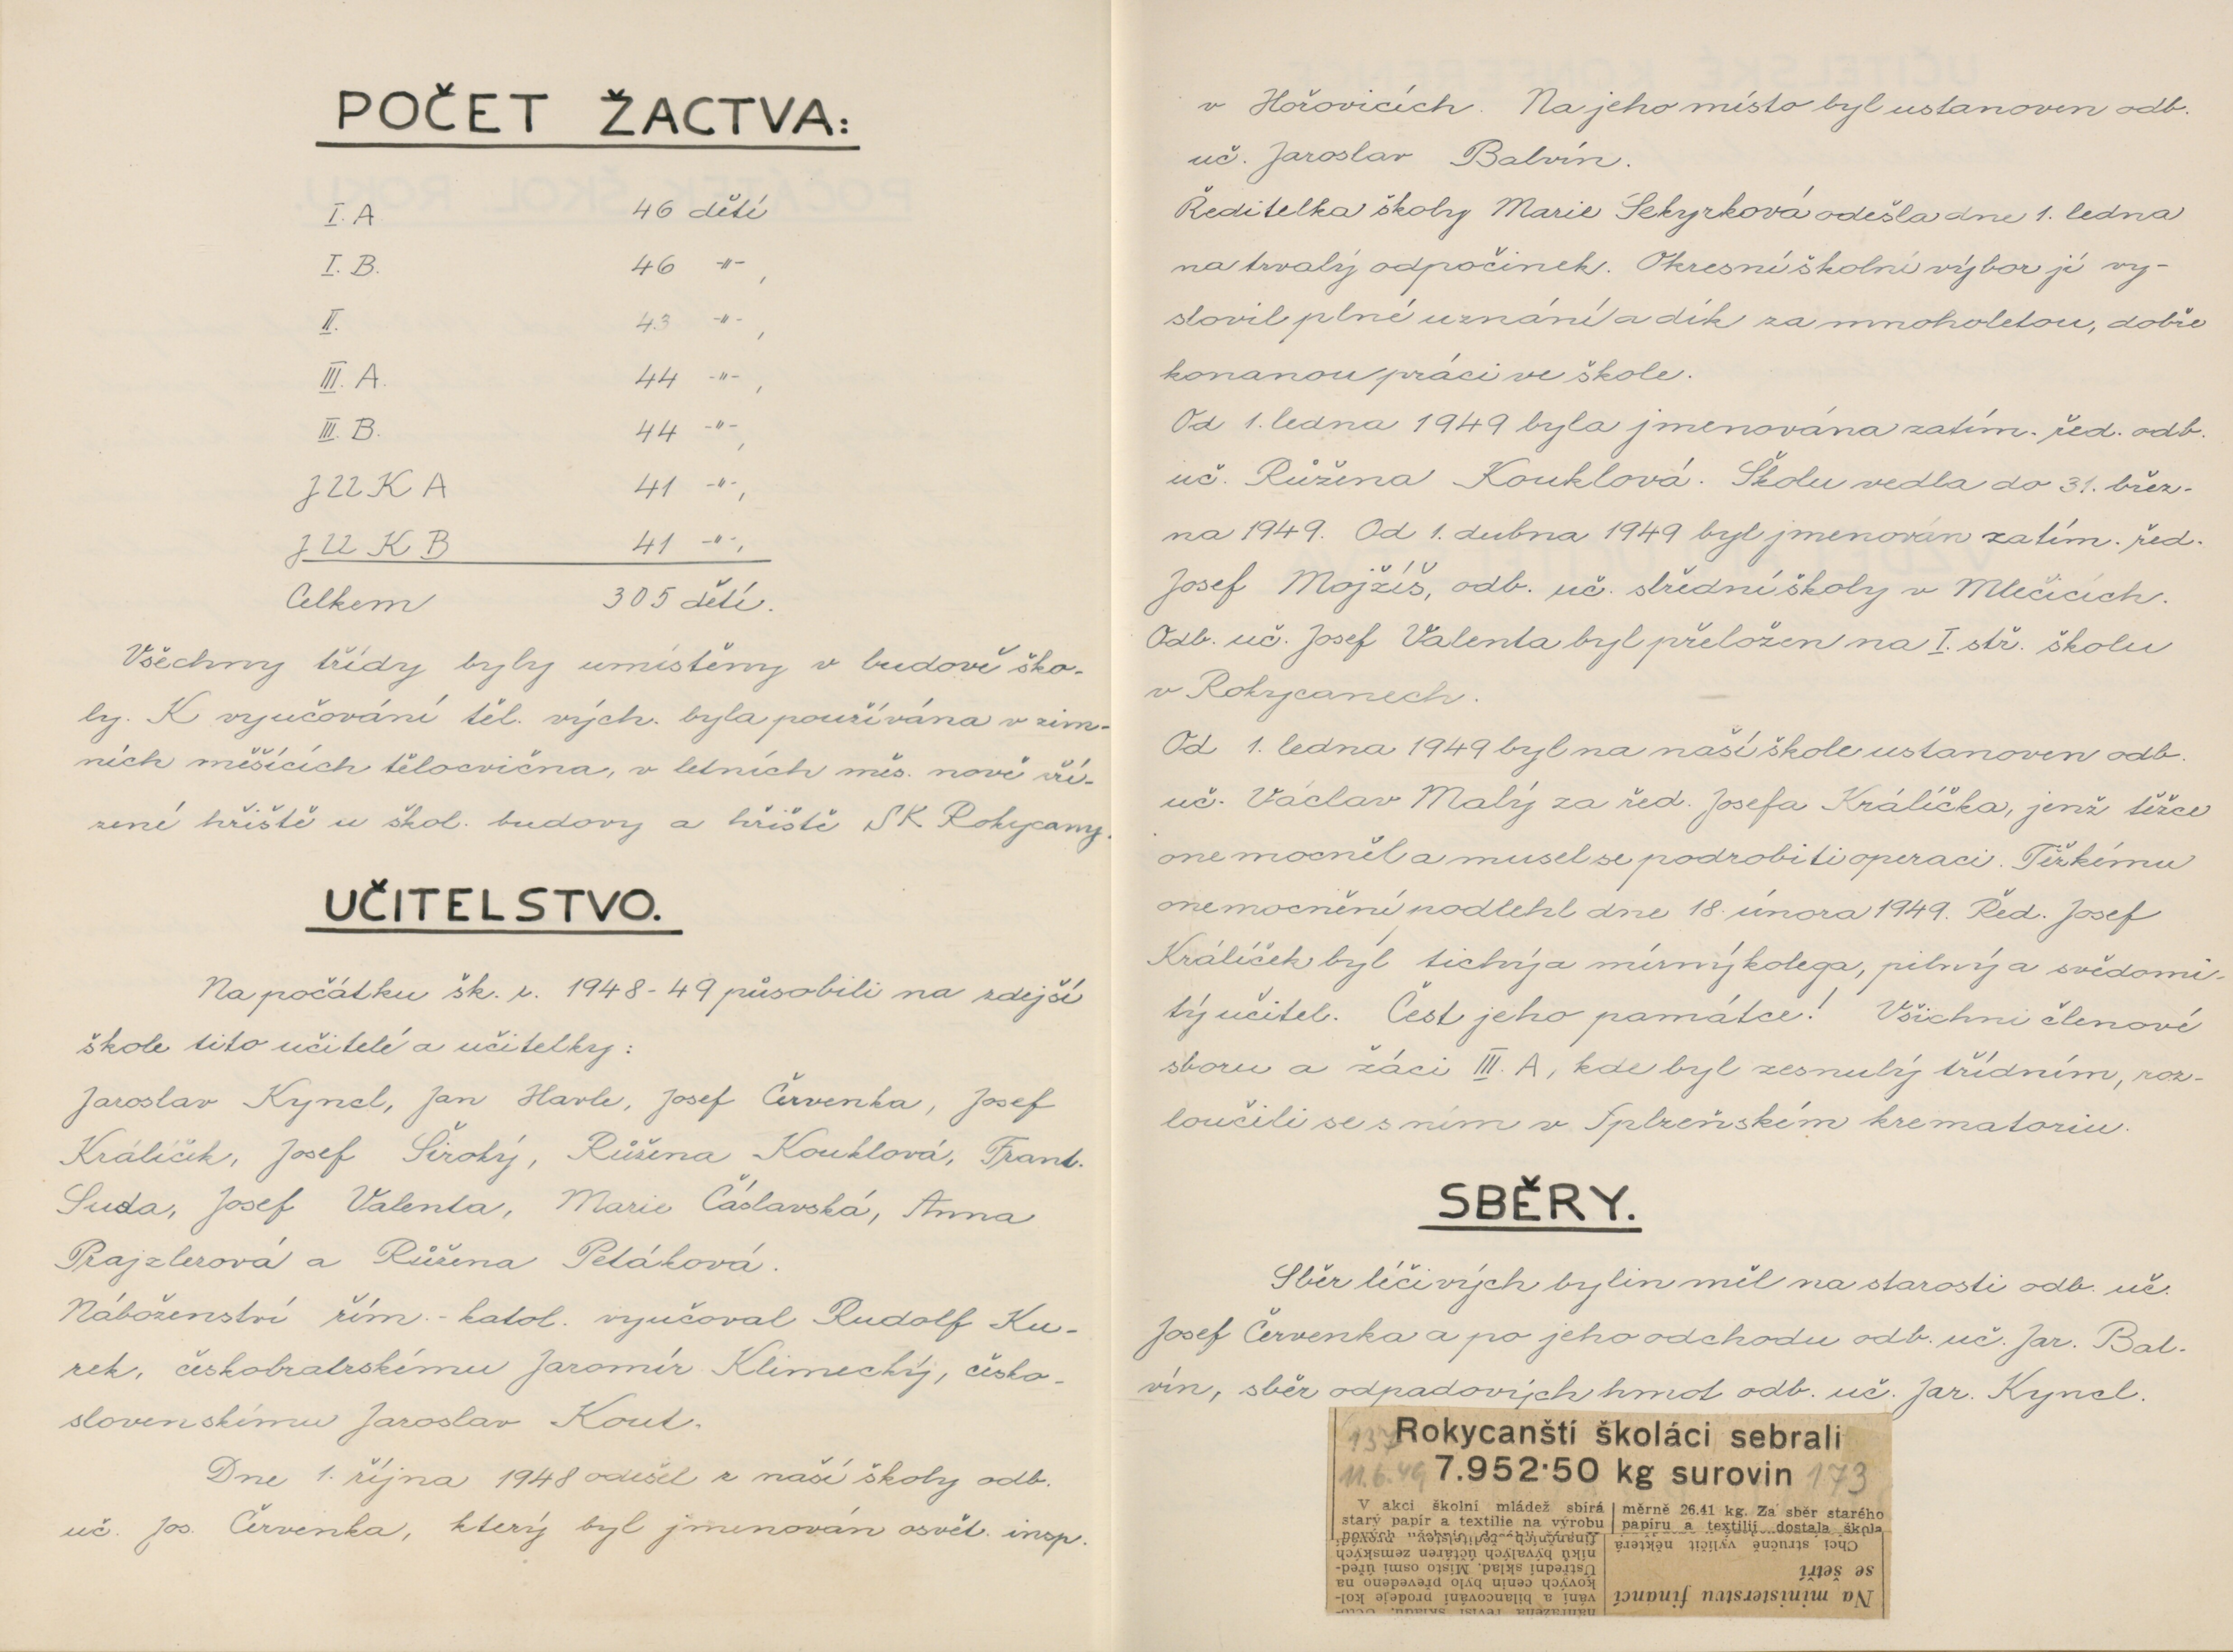 POČET ŽACTVA:
I. A 46 dětí
I. B. 46 -"- ,
II. 43 -"- ,
III. A. 44 -"- ,
III. B. 44 -"- ,
JUK A 41 -"- ,
JUK B 41 -"- ,
Celkem 305 dětí.
Všechny třídy byly umístěny v budově ško-
ly. K vyučování těl. vých. byla používána v zim-
ních měsících tělocvična, v letních měs. nově zří-
zené hřiště u škol. budovy a hřiště SK Rokycany.
UČITELSTVO.
Na počátku šk. r. 1948-49 působili na zdejší
škole tito učitelé a učitelky:
Jaroslav Kyncl, Jan Havle, Josef Červenka, Josef
Králíček, Josef Široký, Růžena Kouklová, Frant.
Suda, Josef Valenta, Marie Čáslavská, Anna
Prajzlerová a Růžena Petáková.
Náboženství řím.-katol. vyučoval Rudolf Ku-
rek, českobratrskému Jaromír Klimecký, česko-
slovenskému Jaroslav Kout.
Dne 1. října 1948 odešel z naší školy odb.
uč. Jos. Červenka, který byl jmenován osvět. insp.
v Hořovicích. Na jeho místo byl ustanoven odb.
uč. Jaroslav Balvín.
Ředitelka školy Marie Sekyrková odešla dne 1. ledna
na trvalý odpočinek. Okresní školní výbor jí vy-
slovil plné uznání a dík za mnoholetou, dobře
konanou práci ve škole.
Od 1. ledna 1949 byla jmenována zatím. řed. odb.
uč. Růžena Kouklová. Školu vedla do 31. břez-
na 1949. Od 1. dubna 1949 byl jmenován zatím. řed.
Josef Mojžíš, odb. uč. střední školy v Mlečicích.
Odb. uč. Josef Valenta byl přeložen na I. stř. školu
v Rokycanech.
Od 1. ledna 1949 byl na naší škole ustanoven odb.
uč. Václav Malý za řed. Josefa Králíčka, jenž těžce
onemocněl a musel se podrobiti operaci. Těžkému
onemocnění podlehl dne 18. února 1949. Řed. Josef
Králíček byl tichý a mírný kolega, pilný a svědomi-
tý učitel. Čest jeho památce! Všichni členové
sboru a žáci III. A, kde byl zesnulý třídním, roz-
loučili se s ním v plzeňském krematoriu.
SBĚRY.
Sběr léčivých bylin měl na starosti odb. uč.
Josef Červenka a po jeho odchodu odb. uč. Jar. Bal-
vín, sběr odpadových hmot odb. uč. Jar. Kyncl.
137 Rokycanští školáci sebrali
11.6.49 7.952·50 kg surovin 173
V akci školní mládež sbírá
starý papír a textilie na výrobu
měrně 26.41 kg. Za sběr starého
papíru a textilií dostala škola
Na ministerstvu financí
se šetří
Chci stručně vylíčit některá
vání a bilancování prodeje kol-
kových cenin bylo převedeno na
Ústřední sklad. Místo osmi úřed-
níků bývalých účtáren zemských